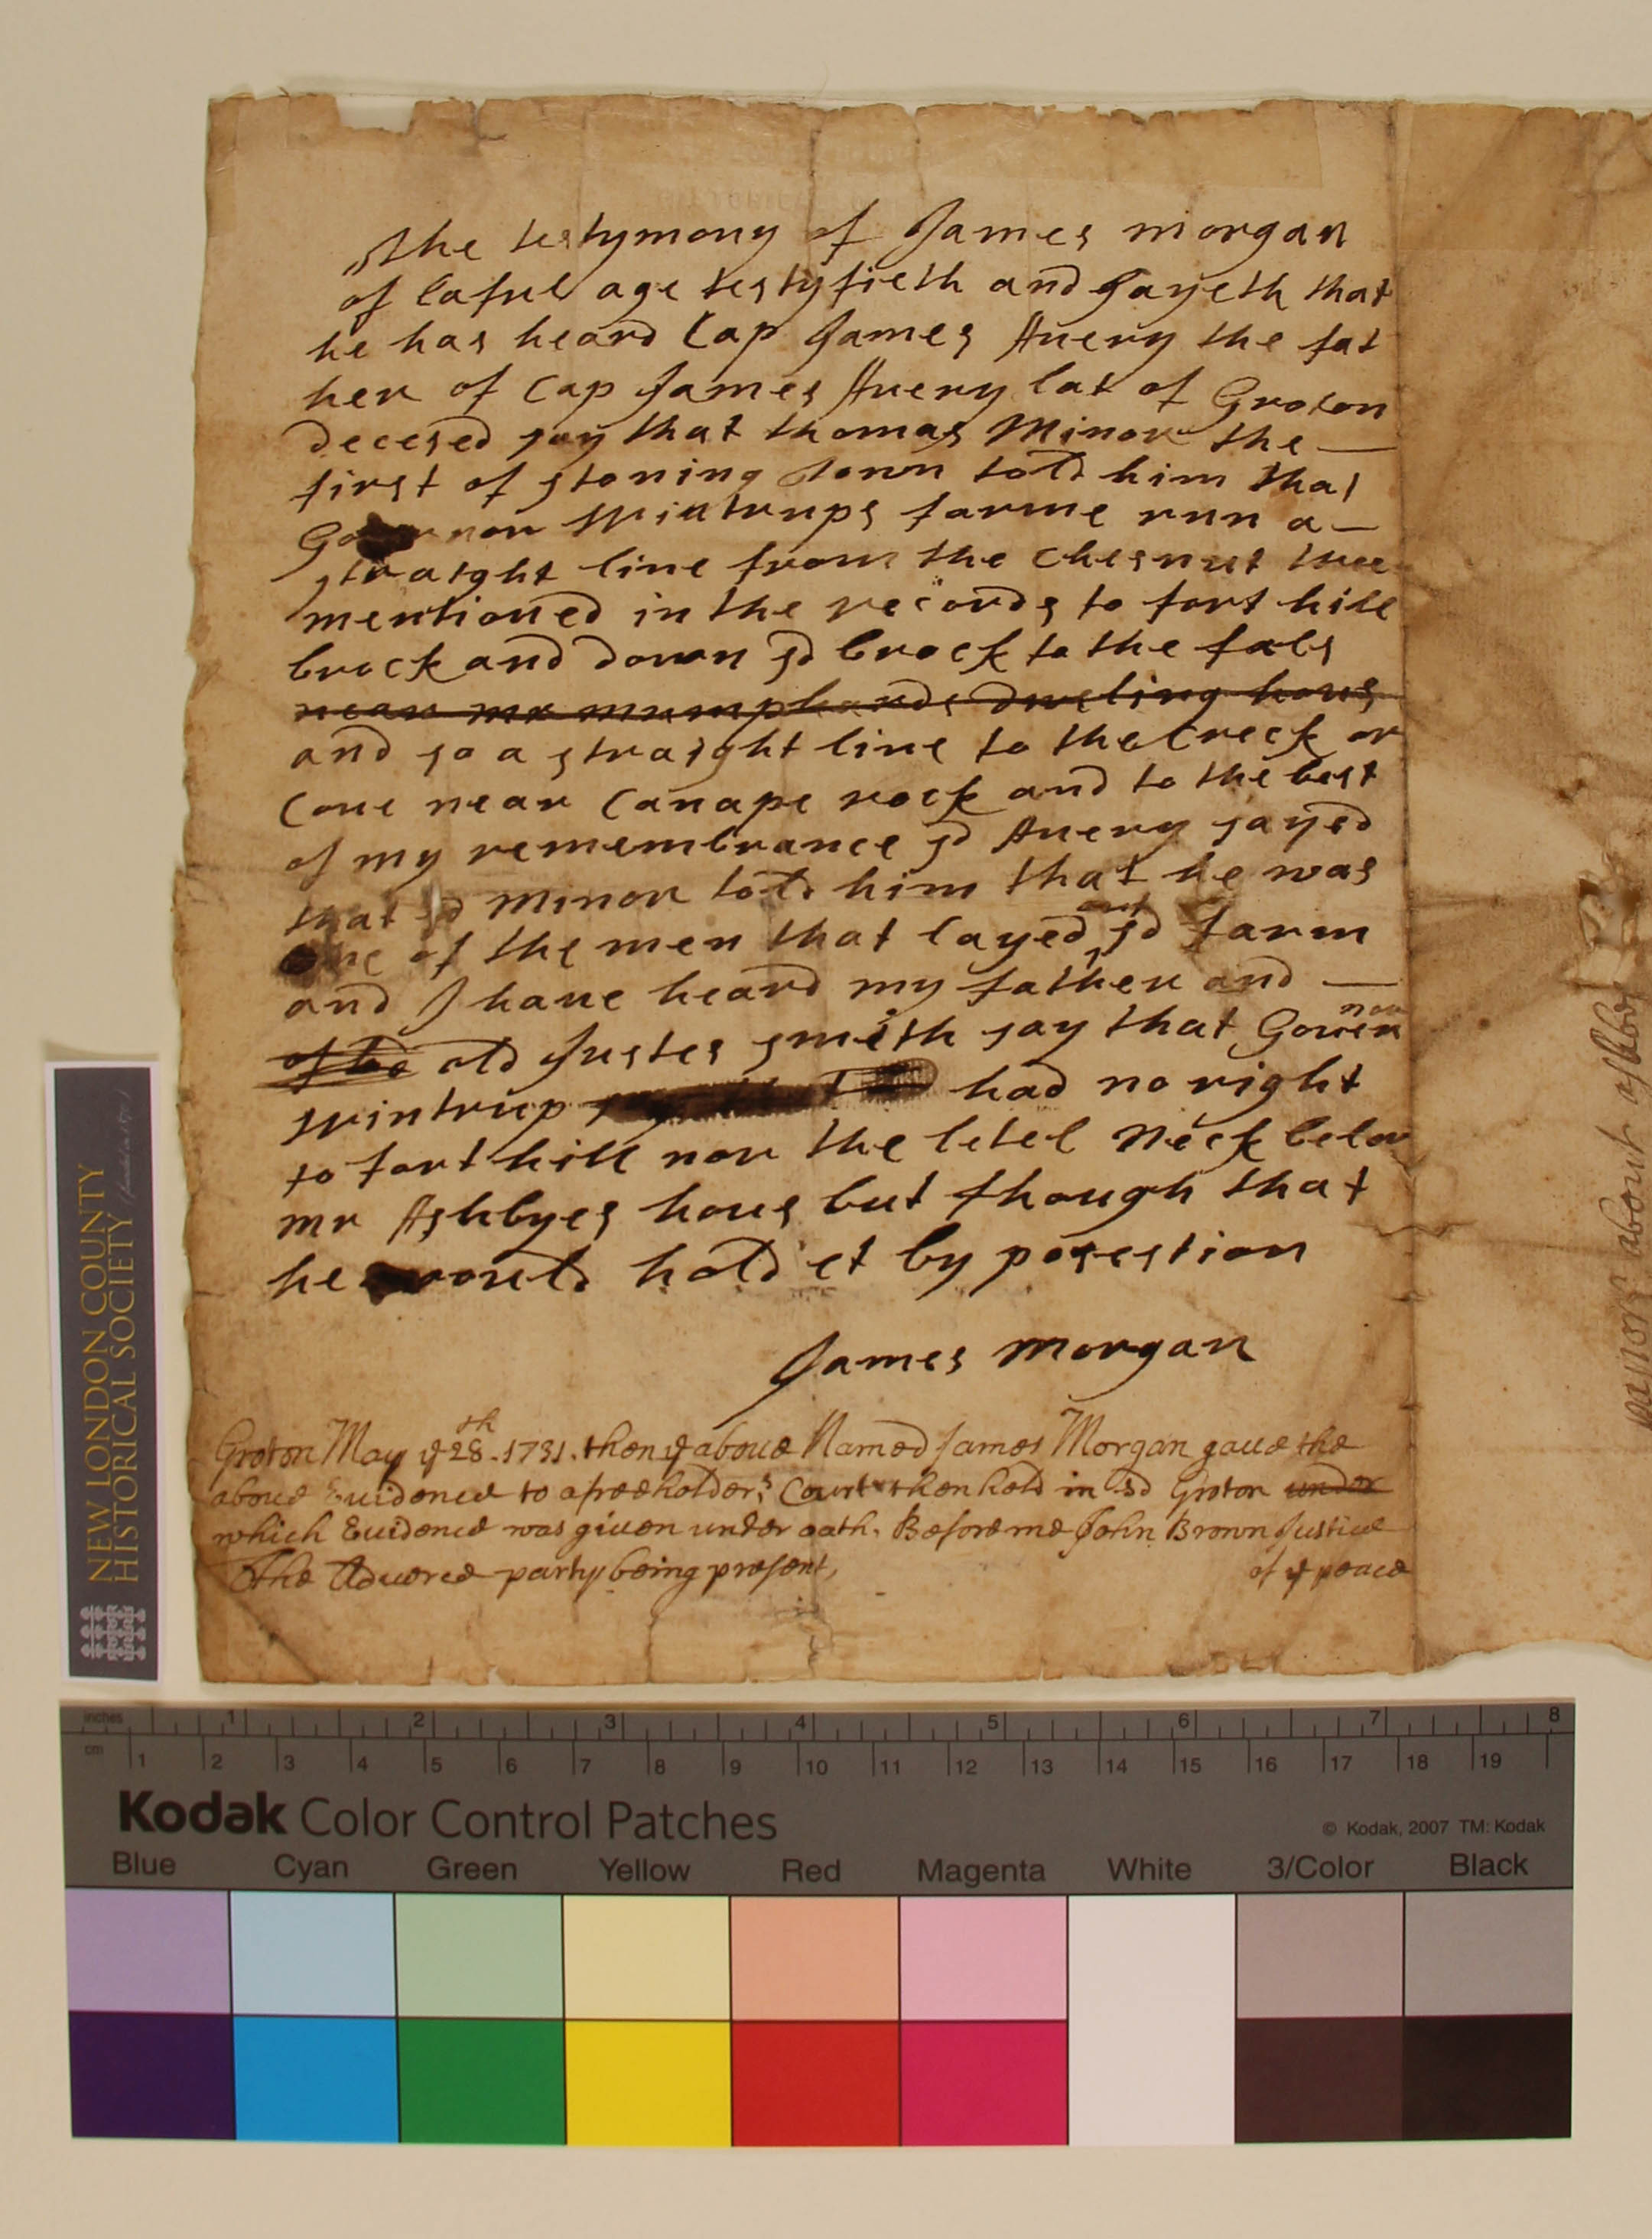 the testymony of James morgan
of laful age testyfieth and sayeth that
he has heard Cap James Auery the fat
her of Cap James Auery lat of Groton
decesed say that thomas Minor the —
first of stoning town told him that
Governor Wintrups farme run a —
straight line from the Chesnut tree
mentioned in the records to fort hill
brock and down sd brock to the fals
near mr mumphards dweling hous
and so a straight line to the Creek or
Coue near Canape rock and to the best
of my remembrance sd Auery sayed
that sd Minor told him that he was
one of the men that layed out sd farm
and I haue heard my father and —
old Justes smith say that Gouernor
Wintrup had no right
to fort hill nor the letel Neck below
mr Ashbyes hous but though that
he would hold et by posestion
James Morgan
Groton May ye 28th. 1731. then ye aboue Named James Morgan gaue the
aboue Euidence to a freeholders Court then held in sd Groton under
which Euidence was giuen under oath. Before me John Brown Justice
of ye peace
The Aduerce party being present,
minor about
NEW LONDON COUNTY
HISTORICAL SOCIETY
inches 1 2 3 4 5 6 7 8
cm 1 2 3 4 5 6 7 8 9 10 11 12 13 14 15 16 17 18 19
Kodak Color Control Patches
© Kodak, 2007 TM: Kodak
Blue Cyan Green Yellow Red Magenta White 3/Color Black